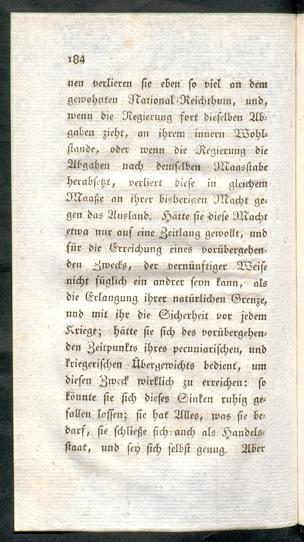 184
nen verlieren sie eben so viel an dem
gewohnten National-Reichthum, und,
wenn die Regierung fort dieselben Ab-
gaben zieht, an ihrem innern Wohl-
stande, oder wenn die Regierung die
Abgaben nach demselben Maasstabe
herabsetzt, verliert diese in gleichem
Maaße an ihrer bisherigen Macht ge-
gen das Ausland. Hätte sie diese Macht
etwa nur auf eine Zeitlang gewollt, und
für die Erreichung eines vorübergehen-
den Zwecks, der vernünftiger Weise
nicht füglich ein andrer seyn kann, als
die Erlangung ihrer natürlichen Grenze,
und mit ihr die Sicherheit vor jedem
Kriege; hätte sie sich des vorübergehen-
den Zeitpunkts ihres pecuniarischen, und
kriegerischen Übergewichts bedient, um
diesen Zweck wirklich zu erreichen: so
könnte sie sich dieses Sinken ruhig ge-
fallen lassen; sie hat Alles, was sie be-
darf, sie schließe sich auch als Handels-
staat, und sey sich selbst genug. Aber